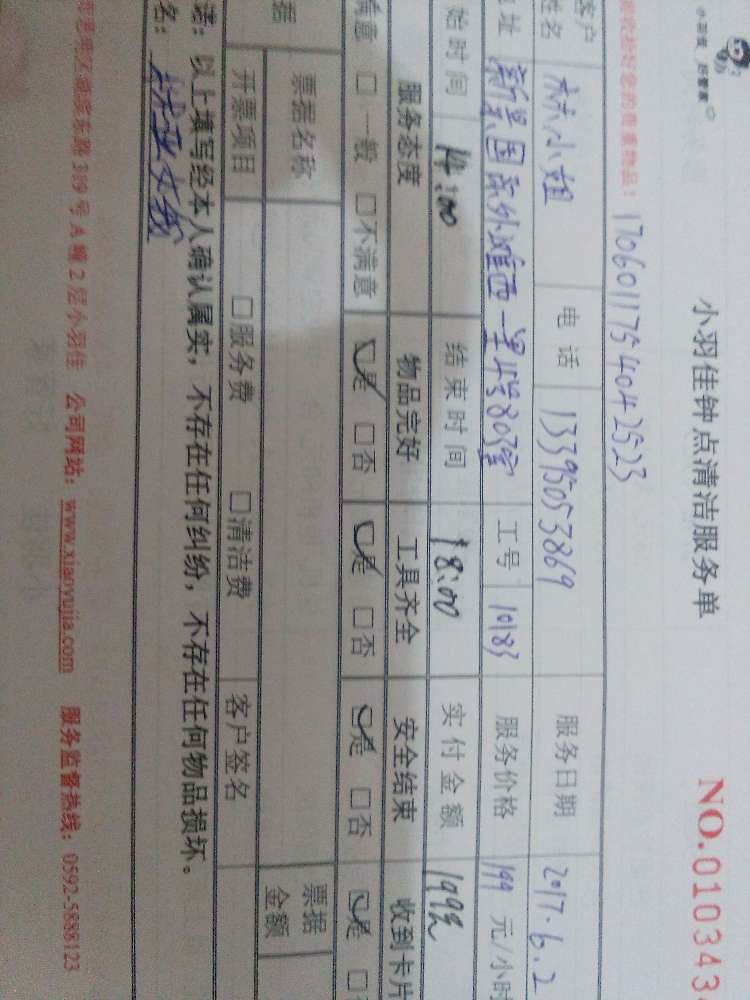 小羽佳 好管家
小羽佳钟点清洁服务单
NO.010343
管好您的贵重物品!
17060117540425 23
客户姓名 林小姐 电话 13395053869 服务日期 2017.6.2
址 新景国际外滩西一里 803室 工号 10183 服务价格 199 元/小时
始时间 14:00 结束时间 18:00 实付金额 199元
服务态度 物品完好 工具齐全 安全结束 收到卡片
满意 □一般 □不满意 □是 □否 □是 □否 □是 □否 □是
据 票据名称 票据金额
开票项目 □服务费 □清洁费 客户签名
以上填写经本人确认属实，不存在任何纠纷，不存在任何物品损坏。
名：
思明区 东路 319 号 A 幢 2 层小羽佳 公司网站：www.xiaoyujia.com 服务监督热线：0592-5888123